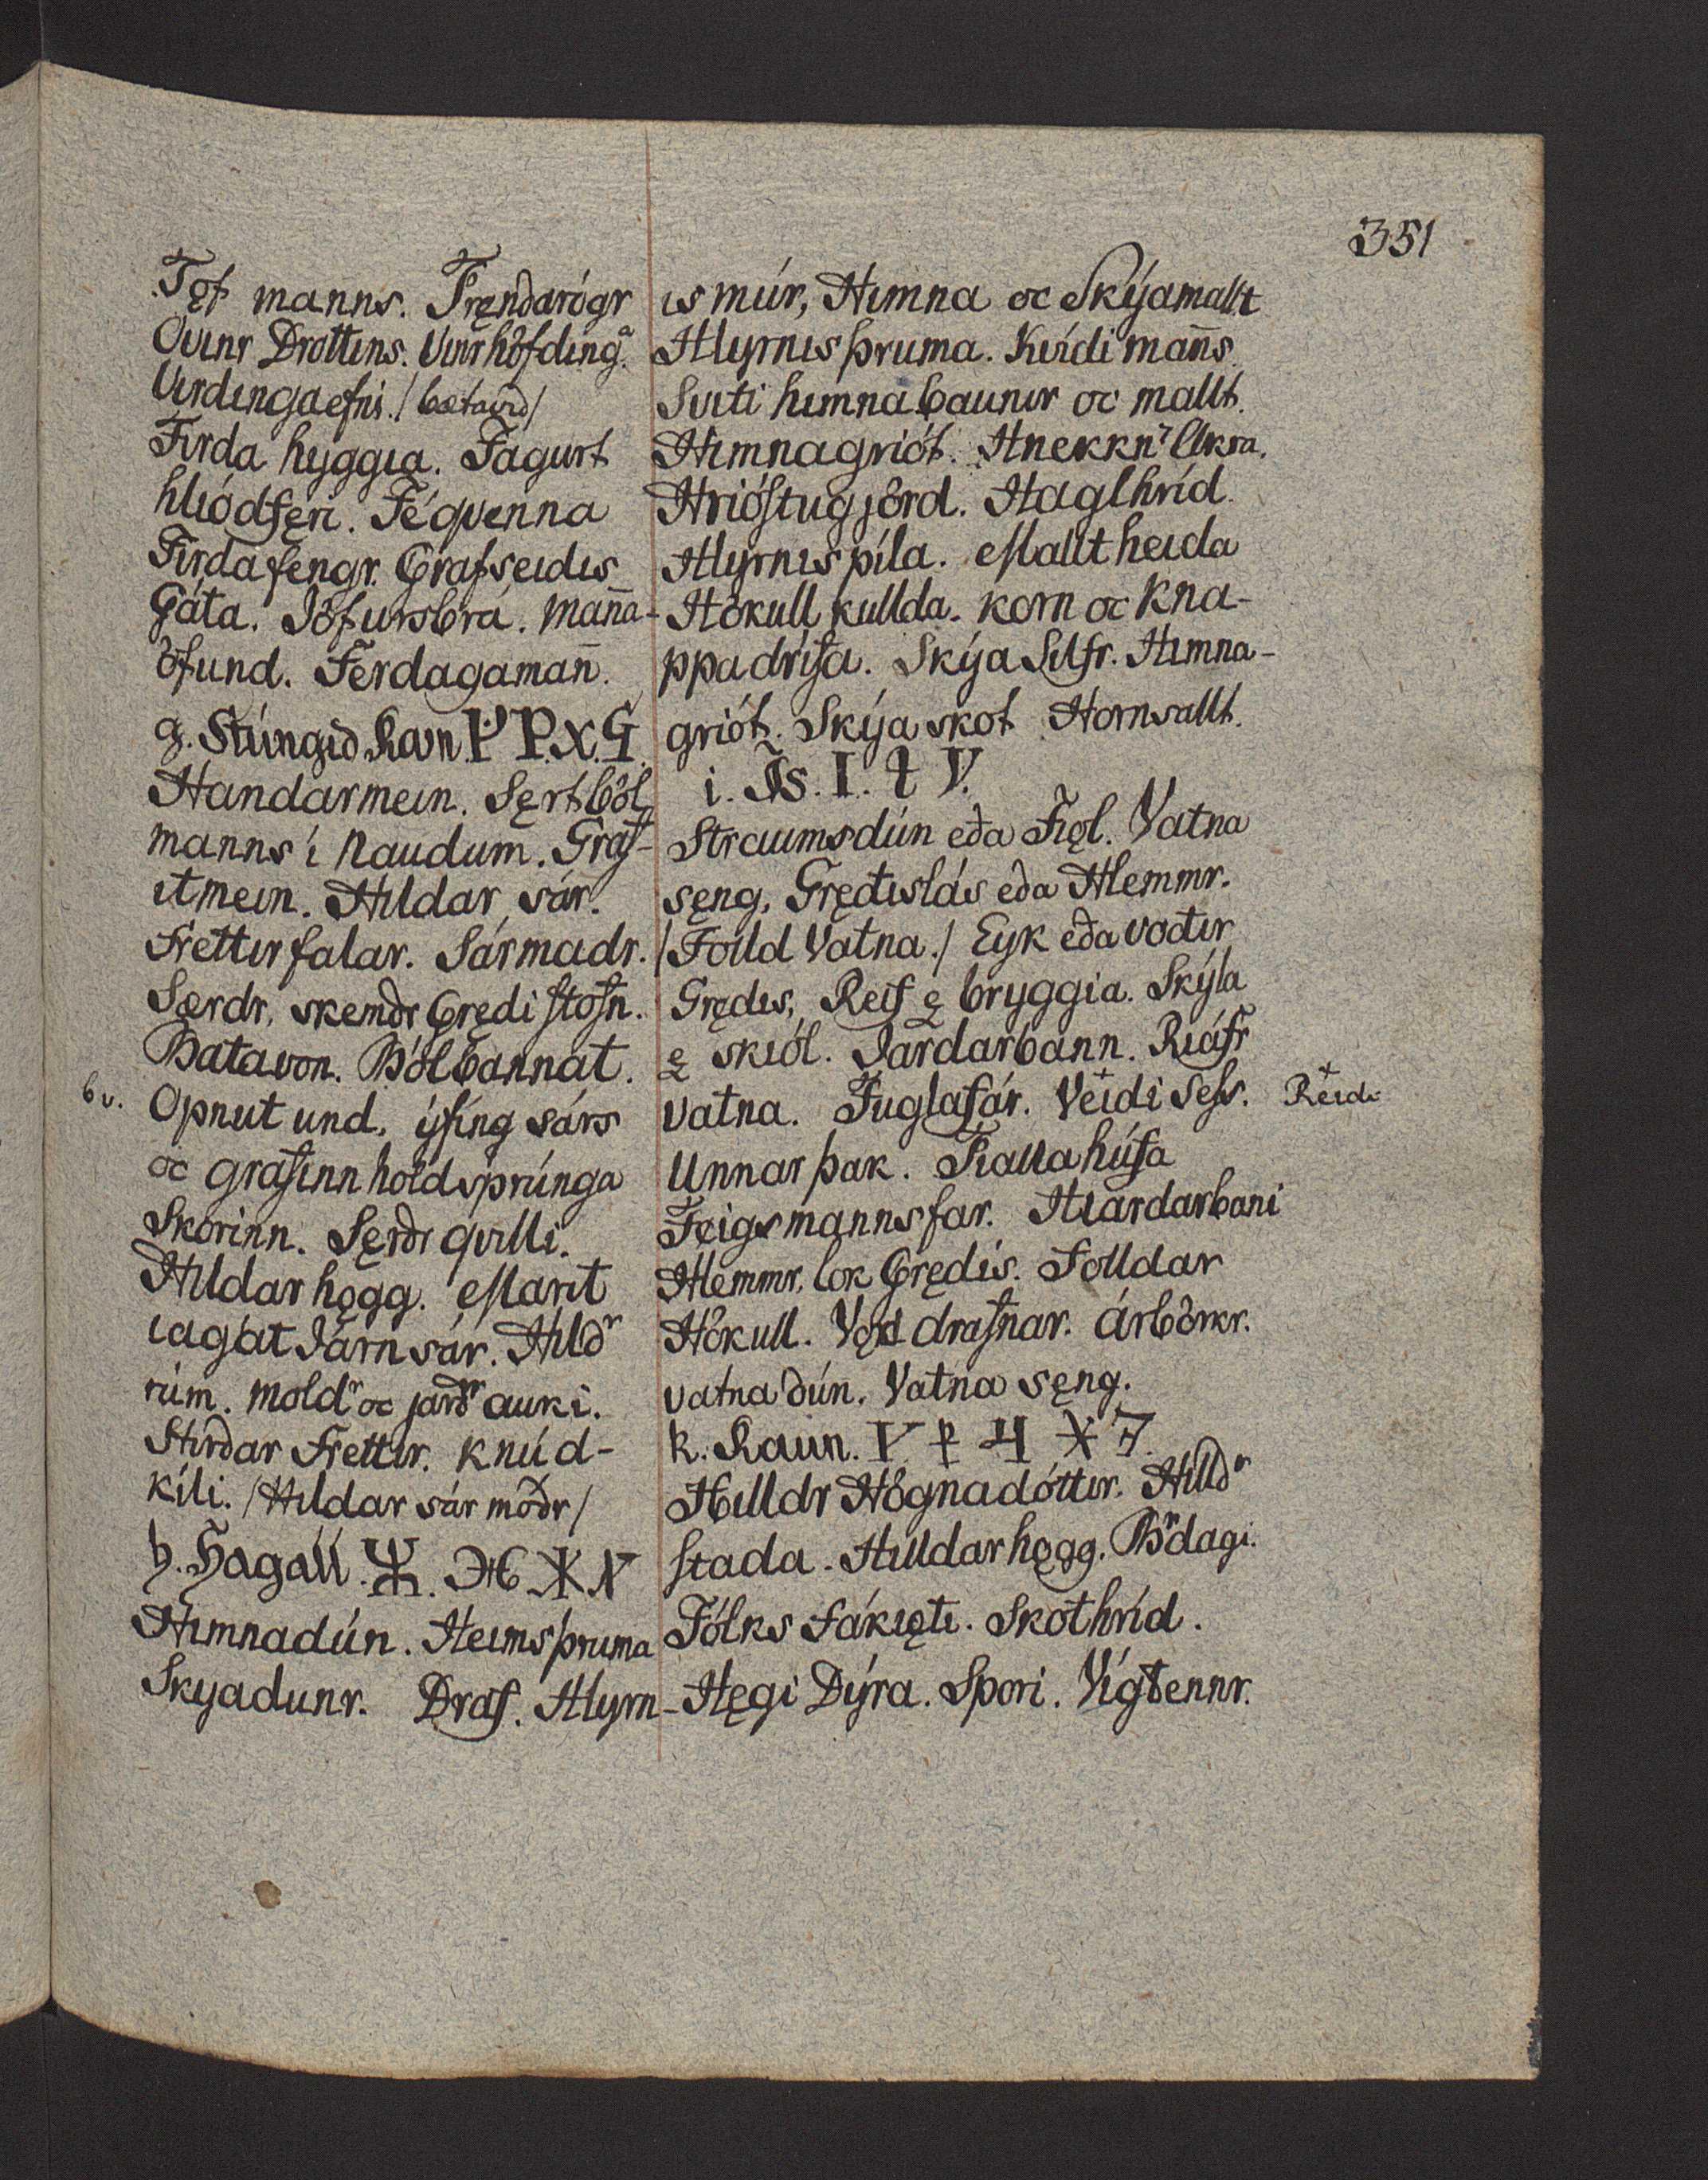 351
Tęt manns. Fręndarógr
Óvinr Drottins. Vinr hôfdinga
Virdingaefni. / bataord /
Firda hyggia. Fagurt
hliódfęri. Féqvenna
Firda fengr. Grafseidis
Gáta. Iôfursbrá. Mana-
ôfund. Ferdagaman.
g. Stúngid Kaun. ᚵ P. X. G.
Handarmein. Sęrt bôl
manns i Naudum. Graf-
it mein. Hildar sár.
Frettir falar. Sármadr.
Særdr, skemdr Grędi stofn.
Batavon. Bôlbannat.
b v. Opnut und, ýfing sárs
oc grafinn hold sprúnga
Skorinn. Sęrdr qvilli.
Hildar hǫgg. Marit
iagat Iárn sár. Hildr
rúm. moldr oc jardr auki.
Stirdar Frettir. knúd-
kíli. / Hildar sár módr /
h. Hagall. ᚼ. H ᚼ N
Himnadún. Heims þruma
Skyadunr. Draf. Hlyrn-
is múr, Himna oc Skýamallt
Hlyrnis þruma. Kvídi mans.
Sviti himna baunir oc mallt.
Himnagriót. Hnekknr Akra.
Hrióstugjôrd. Haglhríd.
Hlyrnis píla. Mallt heida
Hôkull kullda. korn oc kna-
ppadrífa. Skýa Silfr. Himna-
griót. Skýa skot. Hornsallt.
i. Is. I. ł V.
Straumsdún eða Fiǫl. Vatna
sęng, Grędislás eða Hlemmr.
/ Folld Vatna. / Eyk eða vodir
Grędis, Reif ę bryggia. Skýla
ę skiól. Iardarbann. Riáfr
vatna. Fuglafár. Veidi Sess. Reidi
Unnar þak. Fiallahúfa
Feigs manns far. Hiardarbani
Hlemmr, lok Grędis. Folldar
Hôkull. Vęd drafnar. árbôrkr.
vatna dún. Vatna sęng.
k. Kaun. ᚴ
Hilldr Hôgnadóttir. Hilldr
stada. Hilldar hǫgg. Brdagi.
Fólks fákięti. Skothríd.
Hęgi Dýra. Spori. Vígtennr.